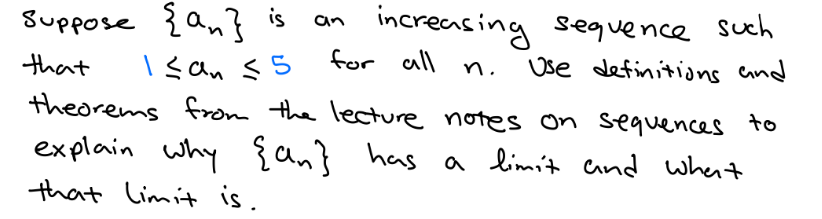 Suppose {aₙ} is an increasing sequence such
that 1 ≤ aₙ ≤ 5 for all n. Use definitions and
theorems from the lecture notes on sequences to
explain why {aₙ} has a limit and what
that limit is.